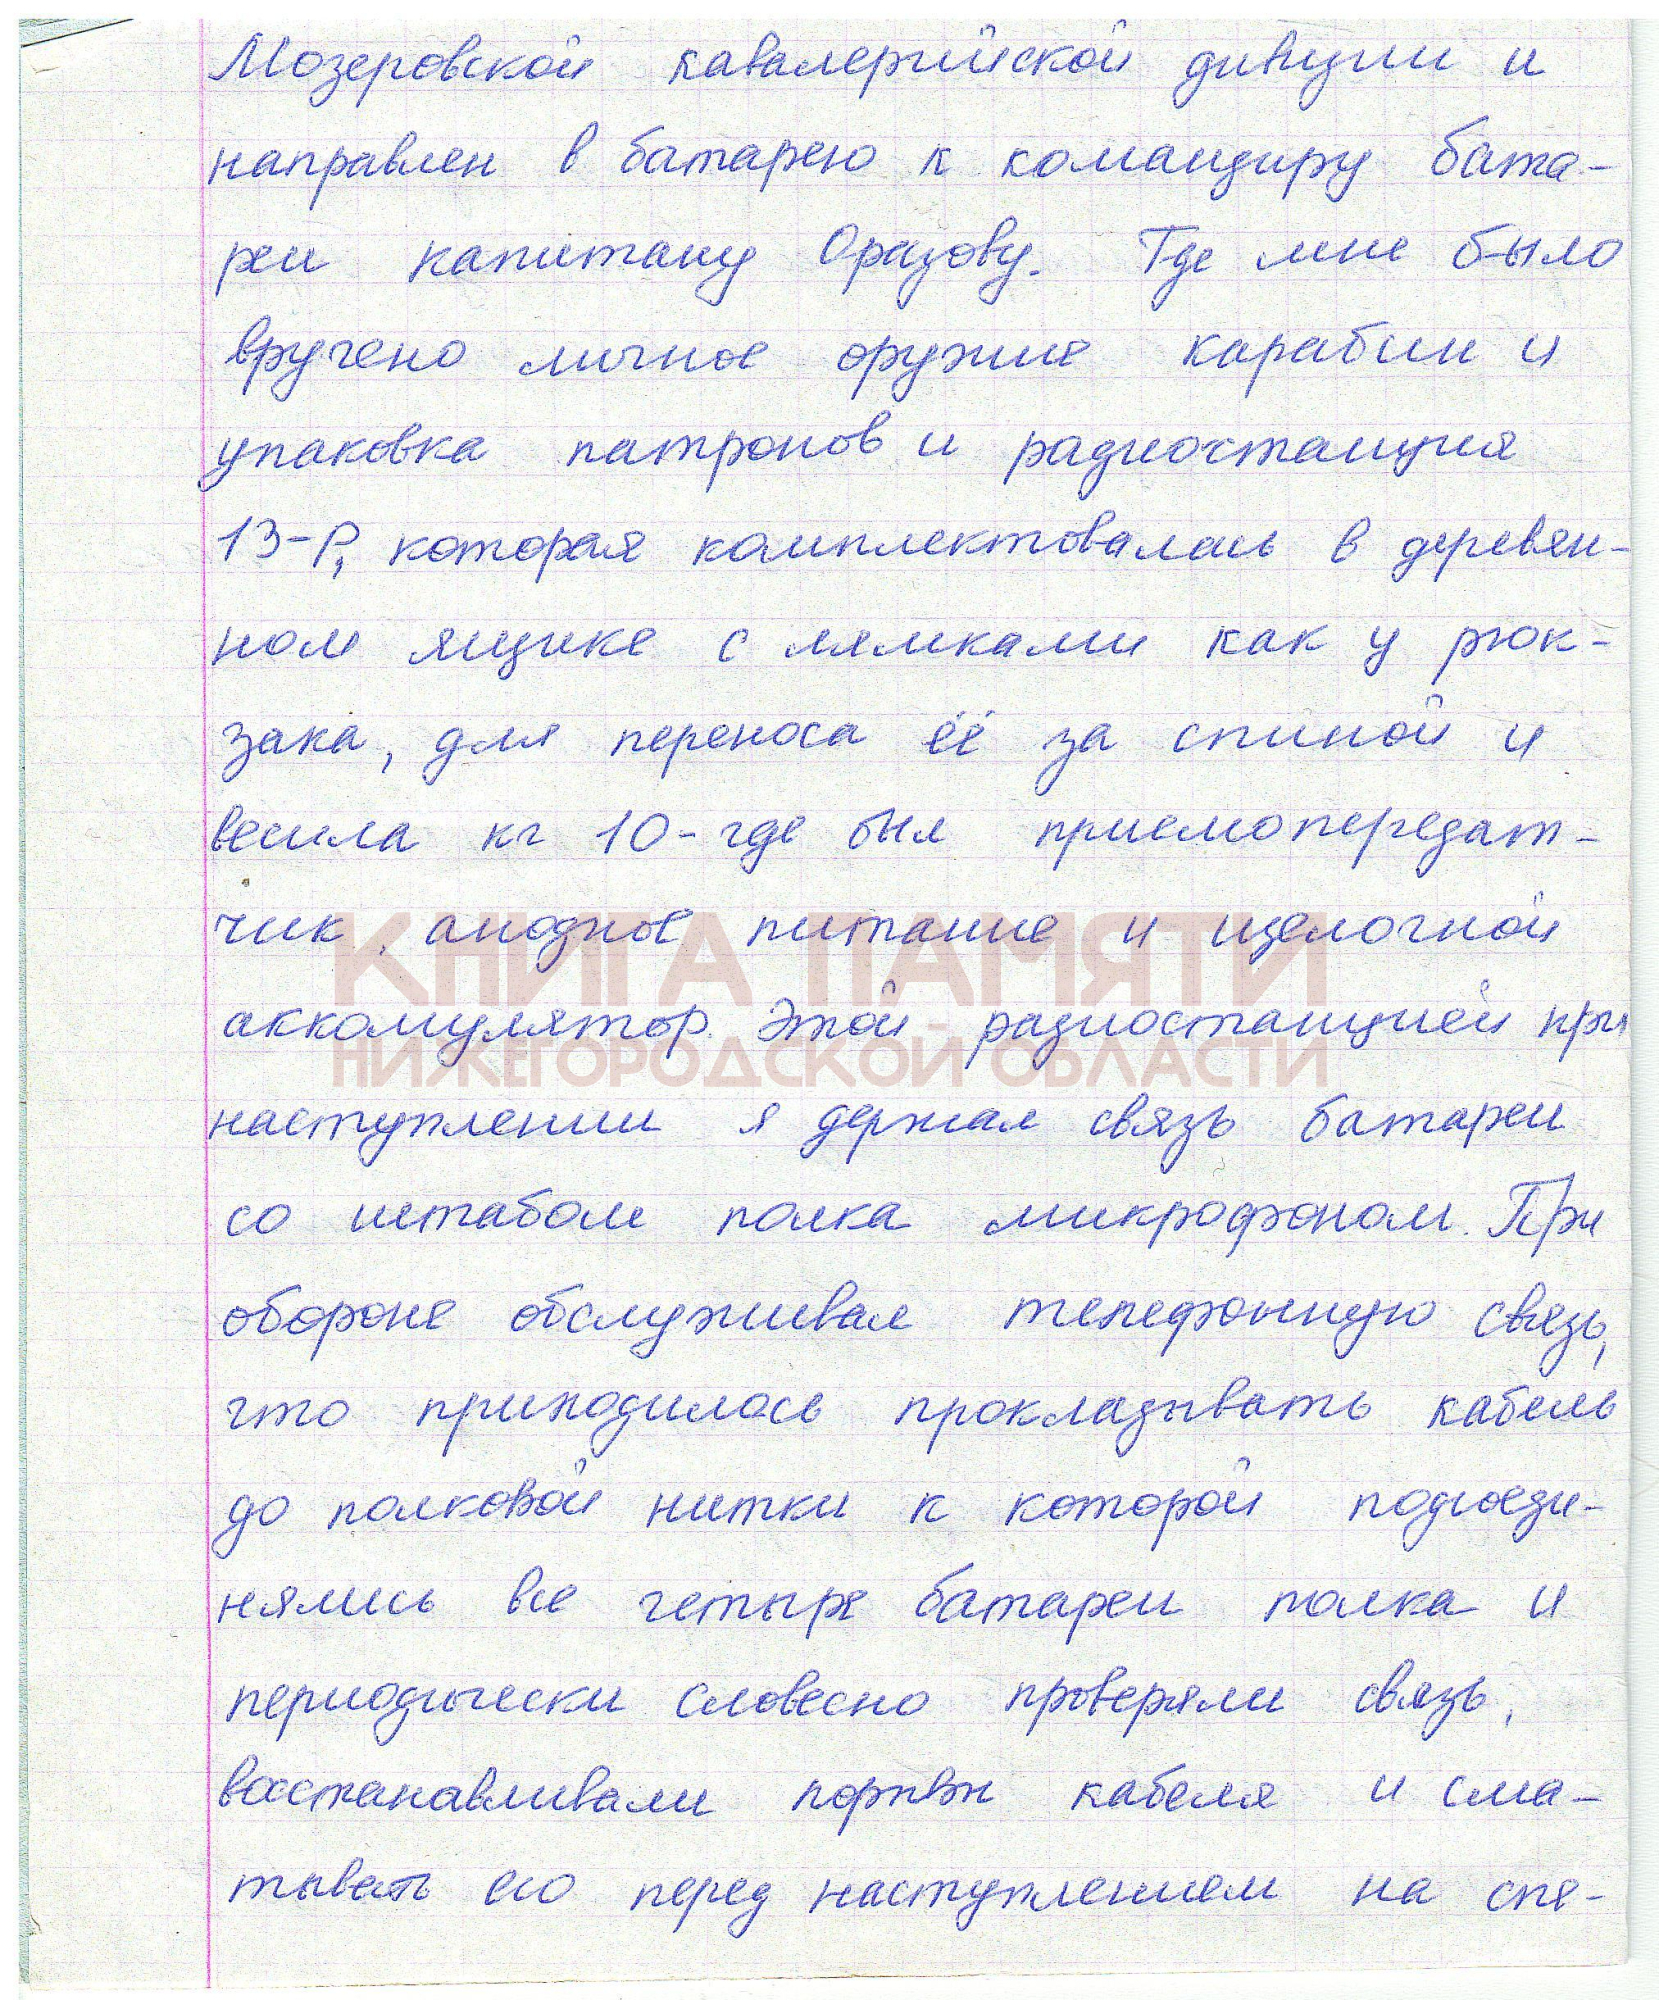 Мозеровской кавалерийской дивизии и
направлен в батарею к командиру бата-
реи капитану Оразову. Где мне было
вручено личное оружие карабин и
упаковка патронов и радиостанция
13-Р, которая комплектовалась в деревян-
ном ящике с лямками как у рюк-
зака, для переноса её за спиной и
весила кг 10-где был приемопередат-
чик, анодное питание и щелочной
аккомулятор. Этой радиостанцией при
КНИГА ПАМЯТИ
НИЖЕГОРОДСКОЙ ОБЛАСТИ
наступлении я держал связь батареи
со штабом полка микрофоном. При
обороне обслуживал телефонную связь,
что приходилось прокладывать кабель
до полковой нитки к которой подсоеди-
нялись все четыре батареи полка и
периодически словесно проверяли связь,
восстанавливали порывы кабеля и сма-
тывать его перед наступлением на спе-